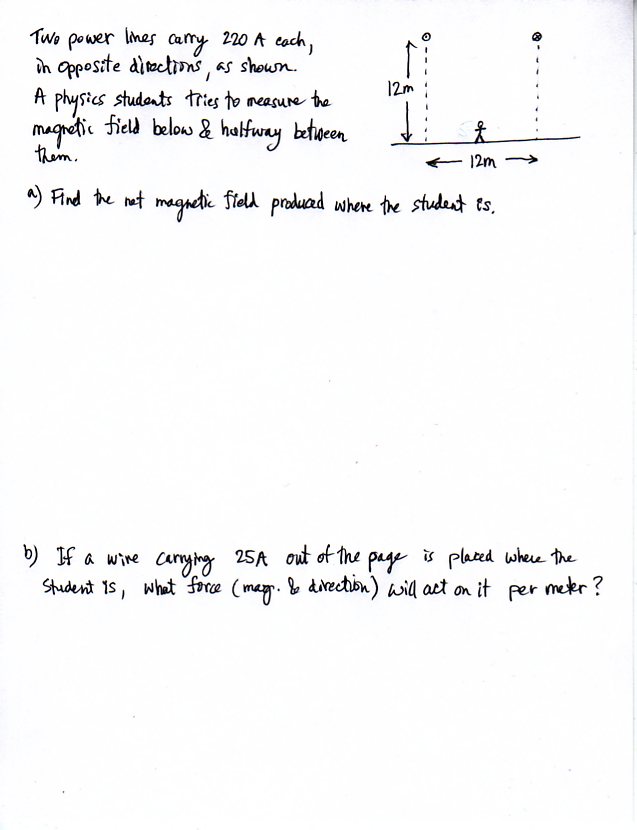 Two power lines carry 220 A each,
in opposite directions, as shown.
A physics students tries to measure the
magnetic field below & halfway between
them.
12m
12m
a) Find the net magnetic field produced where the student is.
b) If a wire carrying 25A out of the page is placed where the
Student is, what force (magn. & direction) will act on it per meter?